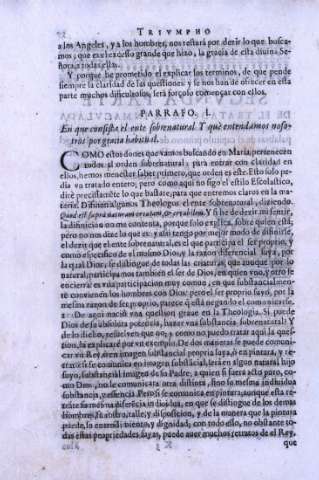 TRIVMPHO
a los Angeles, y a los hombres, nos restará por dezir lo que busca-
mos; que exceso es lo grande que hizo, la gracia de esta divina Se-
ñora, a todas ellas.
Y porque he prometido el explicar los terminos, de que pende
siempre la claridad de las questiones, y se nos han de ofrecer en esta
parte muchos dificultosos, será forçoso començar con ellos.
PARRAFO. I.
En que consista el ente sobrenatural. Y què entendamos noso-
tros por gracia habitual.
COMO estos dones que vamos buscando en Maria, pertenecen
todos al orden sobrenatural; para entrar con claridad en
ellos, hemos menester saber primero, que orden es este. Esto solo pe-
dia vn tratado entero; pero como aqui no sigo el estilo Escolastico,
dirè precisamente lo que bastare, para que entremos claros en la ma-
teria. Difinen algunos Theologos el ente sobrenatural, diziendo,
Quod est supra naturam creatam, &amp; creabilem. Y si he de dezir mi sentir,
la difinicion no me contenta, porque solo explica, sobre quien està;
pero no nos dize lo que es: y assi tengo por mejor modo de difinirle,
el dezir que el ente sobrenatural, es el que participa el ser proprio, y
como especifico de el mismo Dios, y la razon diferencial suya, por
la qual Dios, se distingue de todas las criaturas; que aunque por lo
natural, participamos tambien el ser de Dios, en quien vno, y otro se
encierra es vna participacion muy comun, en que substancialmen-
te convienen los hombres con Dios: pero el ser proprio suyo, por la
mesma razon de ser proprio, parece q̃ està negando el comunicarse.
De aqui nació vna question graue en la Theologia, Si puede
Dios de su absoluta potencia, hazer vna substancia sobrenatural? Y
de lo dicho, resuelven que no; y como no puedo tratar aqui la ques-
tion, la explicarè por vn exemplo. De dos maneras se puede comuni-
car vn Rey, ò en imagen substancial propria suya, ò en pintura, y re-
trato: si se comunica en imagen substãcial, será en algun natural hijo
suyo, substancial imagen de su Padre, a quien si fuera acto puro, co-
mo Dios, no le comunicara otra distinta, sino su mesma individua
substancia, y essencia. Pero si se comunica en pintura, aunque esta re-
trate su mesma diferencia individua, en que se distingue de los demas
hombres, su rostro, talle, y disposicion, y de la manera que la pintura
puede, su entendimiento, y dignidad, con todo esso, no obstante to-
das estas propriedades suyas, puede auer muchos retratos de el Rey,
que